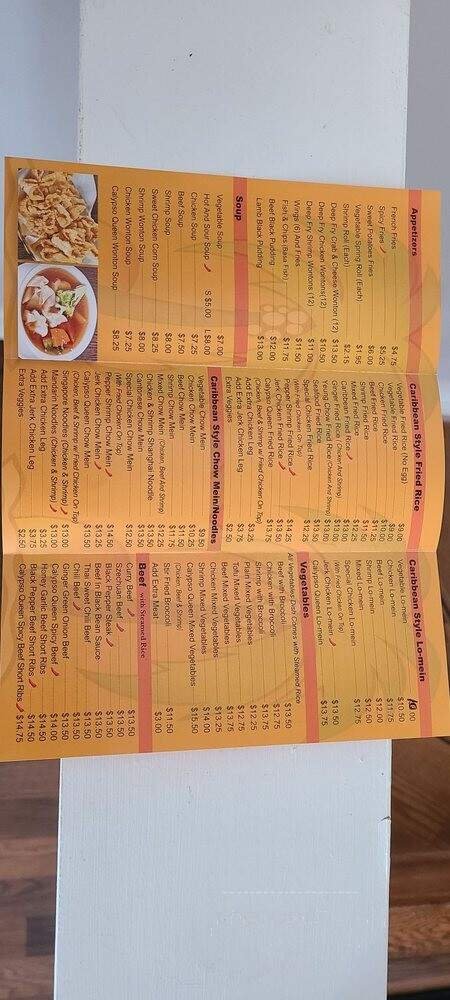 Appetizers
French Fries $4.75
Spicy Fries $5.25
Sweet Potatoes Fries $6.00
Vegetable Spring Roll (Each) $1.95
Shrimp Roll (Each) $2.15
Deep Fry Crab & Cheese Wonton (12) $13.50
Deep Fry Chicken Wontons(12) $10.50
Deep Fry Shrimp Wontons (12) $11.00
Wings (6) And Fries $11.50
Fish & Chips (Basa Fish) $11.75
Beef Black Pudding $12.00
Lamb Black Pudding $13.00
Soup
Vegetable Soup $7.00
Hot And Sour Soup S $5.00 L $8.00
Chicken Soup $7.25
Beef Soup $7.50
Shrimp Soup $8.00
Sweet Chicken Corn Soup $8.25
Shrimp Wonton Soup $8.00
Chicken Wonton Soup $7.25
Calypso Queen Wonton Soup $8.25
Caribbean Style Fried Rice
Vegetable Fried Rice (No Egg) $9.00
Vegetable Fried Rice
Chicken Fried Rice
Beef Fried Rice
Shrimp Fried Rice
Mixed Fried Rice
Caribbean Fried Rice
Ginger Fried Rice (Chicken And Shrimp)
Seafood Fried Rice
Special Chicken Fried Rice
(With Fried Chicken On Top)
Pepper Shrimp Fried Rice
Jerk Chicken Fried Rice
Calypso Queen Fried Rice $13.75
(Chicken, Beef & Shrimp w/ Fried Chicken On Top)
Add Extra Chicken Leg
Add Extra Jerk Chicken Leg $3.75
Extra Veggies $2.50
Caribbean Style Chow Mein/Noodles
Vegetable Chow Mein $9.50
Chicken Chow Mein $10.25
Beef Chow Mein $11.50
Shrimp Chow Mein $11.75
Mixed Chow Mein (Chicken, Beef And Shrimp) $12.25
Chicken & Shrimp Shanghai Noodle $13.50
Cantonese Chow Mein $13.50
Special Chicken Chow Mein $12.50
(With Fried Chicken On Top)
Pepper Shrimp Chow Mein $14.50
Jerk Chicken Chow Mein $13.25
Calypso Queen Chow Mein $13.50
(Chicken, Beef & Shrimp w/ Fried Chicken On Top)
Singapore Noodles (Chicken & Shrimp) $13.00
Mandarin Noodles (Chicken & Shrimp) $13.00
Add Extra Chicken Leg
Add Extra Jerk Chicken Leg $3.75
Extra Veggies $2.50
Caribbean Style Lo-mein
Vegetable Lo-mein $10.50
Chicken Lo-mein $11.75
Beef Lo-mein $12.00
Shrimp Lo-mein $12.50
Mixed Lo-mein $12.75
Special Chicken Lo-mein
(With Fried Chicken On Top) $13.50
Jerk Chicken Lo-mein
Calypso Queen Lo-mein $13.75
Vegetables
All Vegetables Dish Comes with Steamed Rice
Beef with Broccoli $13.50
Chicken with Broccoli $12.75
Shrimp with Broccoli $13.75
Plain Mixed Vegetables $12.25
Tofu Mixed Vegetables $12.75
Beef Mixed Vegetables $13.75
Chicken Mixed Vegetables $13.25
Shrimp Mixed Vegetables $14.00
Calypso Queen Mixed Vegetables $15.50
(Chicken, Beef & Shrimp)
Stir Fried Broccoli $11.50
Add Extra Meat $3.00
Beef with Steamed Rice
Curry Beef $13.50
Szechuan Beef $13.50
Black Pepper Steak $13.50
Beef in Black Bean Sauce $13.50
Thai Sweet Chili Beef $13.50
Chili Beef $13.50
Ginger Green Onion Beef $13.50
Calypso Queen Spicy Beef $14.00
Honey Garlic Beef Short Ribs $14.50
Black Pepper Beef Short Ribs $14.50
Calypso Queen Spicy Beef Short Ribs $14.75